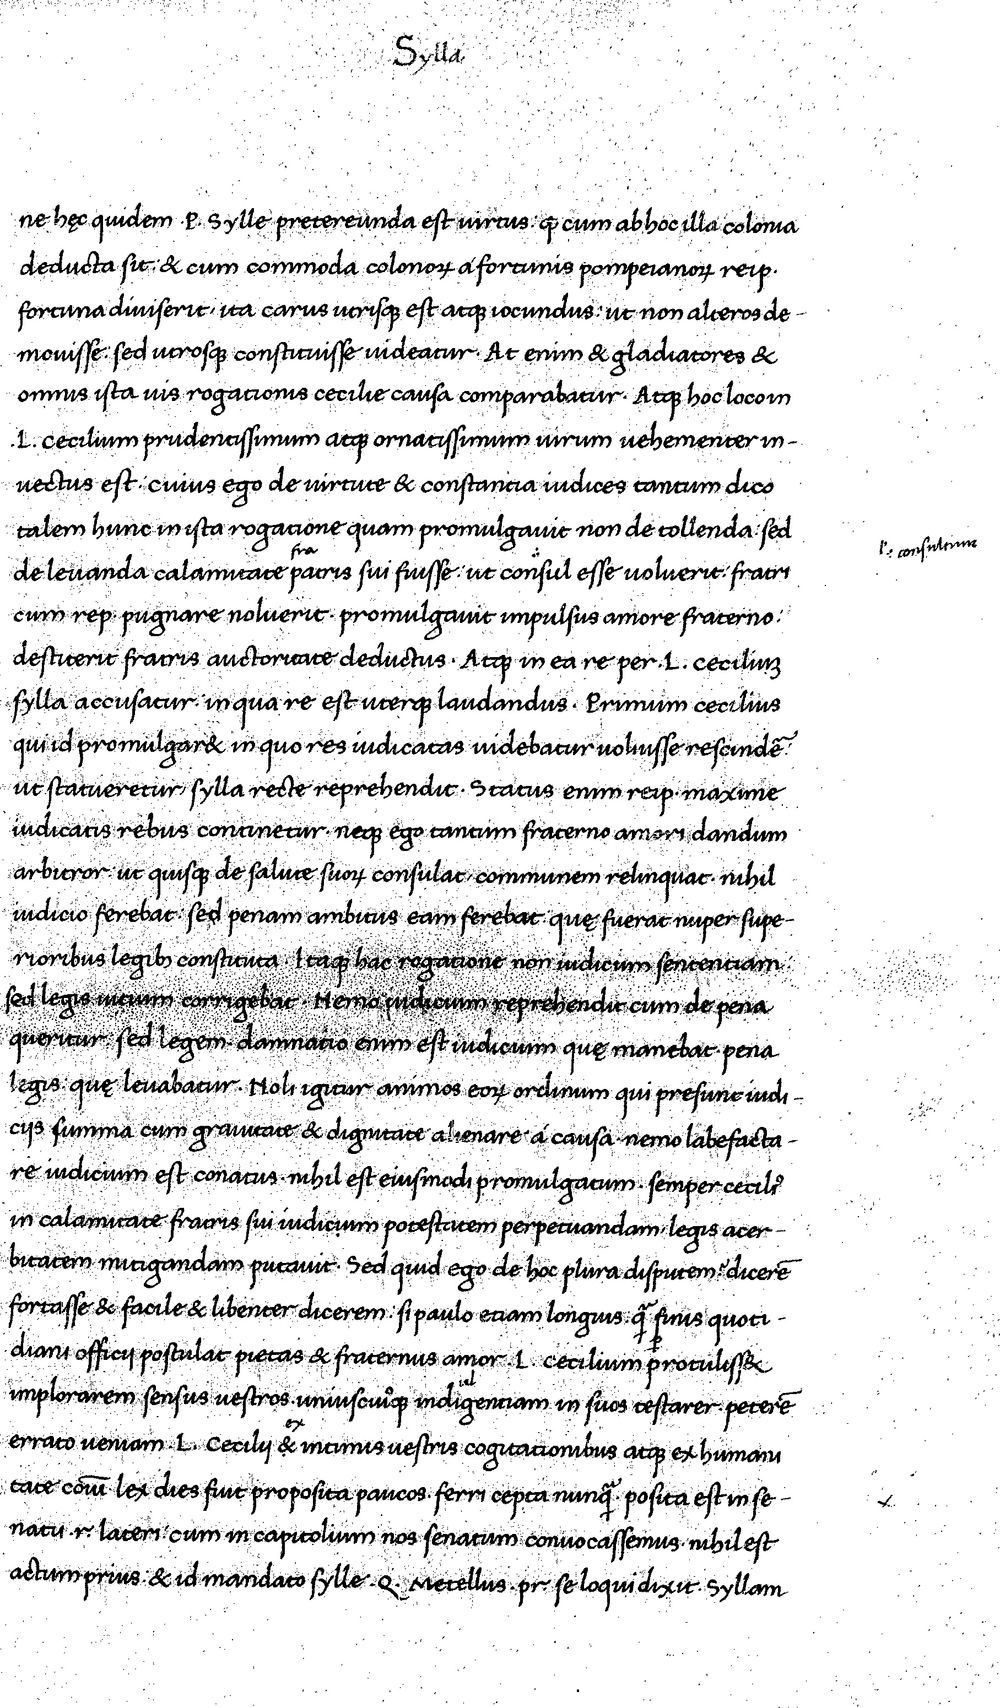 Sylla
ne hęc quidem P. Sylle pretereunda est uirtus. ꝙ cum ab hoc illa colonia
deducta sit: & cum commoda colonoꝝ á fortunis pompeianoꝝ reip.
fortuna diuiserit. ita carus utrisqꝫ est atqꝫ iocundus: ut non alteros de-
mouisse. sed utrosqꝫ constituisse uideatur. At enim & gladiatores &
omnis ista uis rogationis cecilie causa comparabatur. Atqꝫ hoc loco in
.L. cecilium prudentissimum atqꝫ ornatissimum uirum uehementer in-
uectus est. cuius ego de uirtute & constantia iudices tantum dico
talem hunc in ista rogatione quam promulgauit non de tollenda. sed
fra
de leuanda calamitate patris sui fuisse. ut consul esse uoluerit. fratri
l'. consultum
cum rep. pugnare noluerit. promulgauit impulsus amore fraterno:
destiterit fratris auctoritate deductus. Atqꝫ in ea re per .L. ceciliuꝫ
sylla accusatur. in qua re est uterqꝫ laudandus. Primum cecilius
qui id promulgar& in quo res iudicatas uidebatur uoluisse rescindē.
ut statueretur sylla recte reprehendit. Status enim reip. maxime
iudicatis rebus continetur. neqꝫ ego tantum fraterno amori dandum
arbitror. ut quisqꝫ de salute suoꝝ consulat. communem relinquat. nihil
iudicio ferebat. sed penam ambitus eam ferebat. quę fuerat nuper supe-
rioribus legibꝫ constituta. Itaqꝫ hac rogatione non iudicum sententiam.
sed legis uitium corrigebat. Nemo iudicium reprehendit cum de pena
queritur. sed legem. damnatio enim est iudicium quę manebat. pena
legis. quę leuabatur. Noli igitur animos eoꝝ ordinum qui presunt iudi-
cijs summa cum grauitate & dignitate alienare á causa. nemo labefacta-
re iudicium est conatus. nihil est eiusmodi promulgatum. semper ceciliꝰ
in calamitate fratris sui iudicium potestatem perpetuandam. legis acer-
bitatem mitigandam putauit. Sed quid ego de hoc plura disputem? dicerē
fortasse & facile & libenter dicerem. si paulo etiam longius. q̃ finis quoti-
diani officij postulat pietas & fraternus amor .L. cecilium protuliss&
implorarem sensus uestros. uniuscuiꝰqꝫ indigentiam in suos testarer. peterē
ex
errato ueniam .L. Cecilij & intimis uestris cogitationibus atqꝫ ex humani
tate coīu lex dies fuit proposita paucos. ferri cepta nunq̃. posita est in se-
natu .r. lateri. cum in capitolium nos senatum conuocassemus. nihil est
actum prius. & id mandato sylle .Q. Metellus. pr. se loqui dixit. Syllam